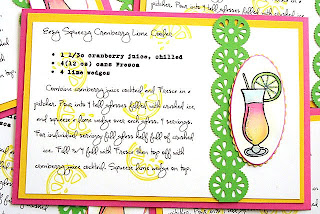 Easy Squeezy Cranberry Lime Cooler
• 1 1/3c cranberry juice, chilled
• 4(12 oz) cans Fresca
• 4 lime wedges
Combine cranberry juice cocktail and Fresca in a
pitcher. Pour into 4 tall glasses filled with crushed ice
and squeeze lime wedge over each glass. 4 servings.
For individual serving fill glass half full of crushed
ice. Fill 3/4 full with Fresca then top off with
cranberry juice cocktail. Squeeze lime wedge on top.